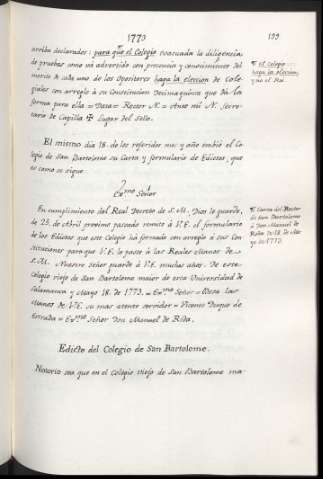 1773
199
arriba declarados: para q̃ el Colegio evacuada la diligencia
de pruebas como vá advertido con presencia y conocimiento del
merito de cada uno de los Opositores haga la eleccion de Cole-
giales con arreglo á su Constitucion Decimaquinta que dá la
forma para ella = Data = Rector N. = Ante mi N. Secre-
tario de Capilla ✠ Lugar del Sello.
¶ el Colegio
haga la eleccion,
y no el Rei.
El mismo dia 18. de los referidos mes y año embió el Co-
legio de San Bartolome su Carta y formulario de Edictos, que
es como se sigue
Ex.mo Señor
En cumplimiento del Real Decreto de S.M. Dios le guarde,
de 23. de Abril proximo pasado remito á V.E. el formulario
de los Edictos que este Colegio há formado con arreglo á sus Con-
stituciones para que V.E. lo pase á las Reales Manos de
S.M. Nuestro Señor guarde á V.E. muchos años. De este
Colegio viejo de San Bartolome maior de esta Universidad de
Salamanca y Mayo 18. de 1773. = Ex.mo Señor = Besa las
Manos de V.E. su mas atento servidor = Vicente Duque de
Estrada = Ex.mo Señor Don Manuel de Roda.
¶ Carta del Rector
de San Bartolome
á Don Manuel de
Roda de 18. de Ma-
yo de 1773.
Edicto del Colegio de San Bartolome.
Notorio sea que en el Colegio viejo de San Bartolome ma-